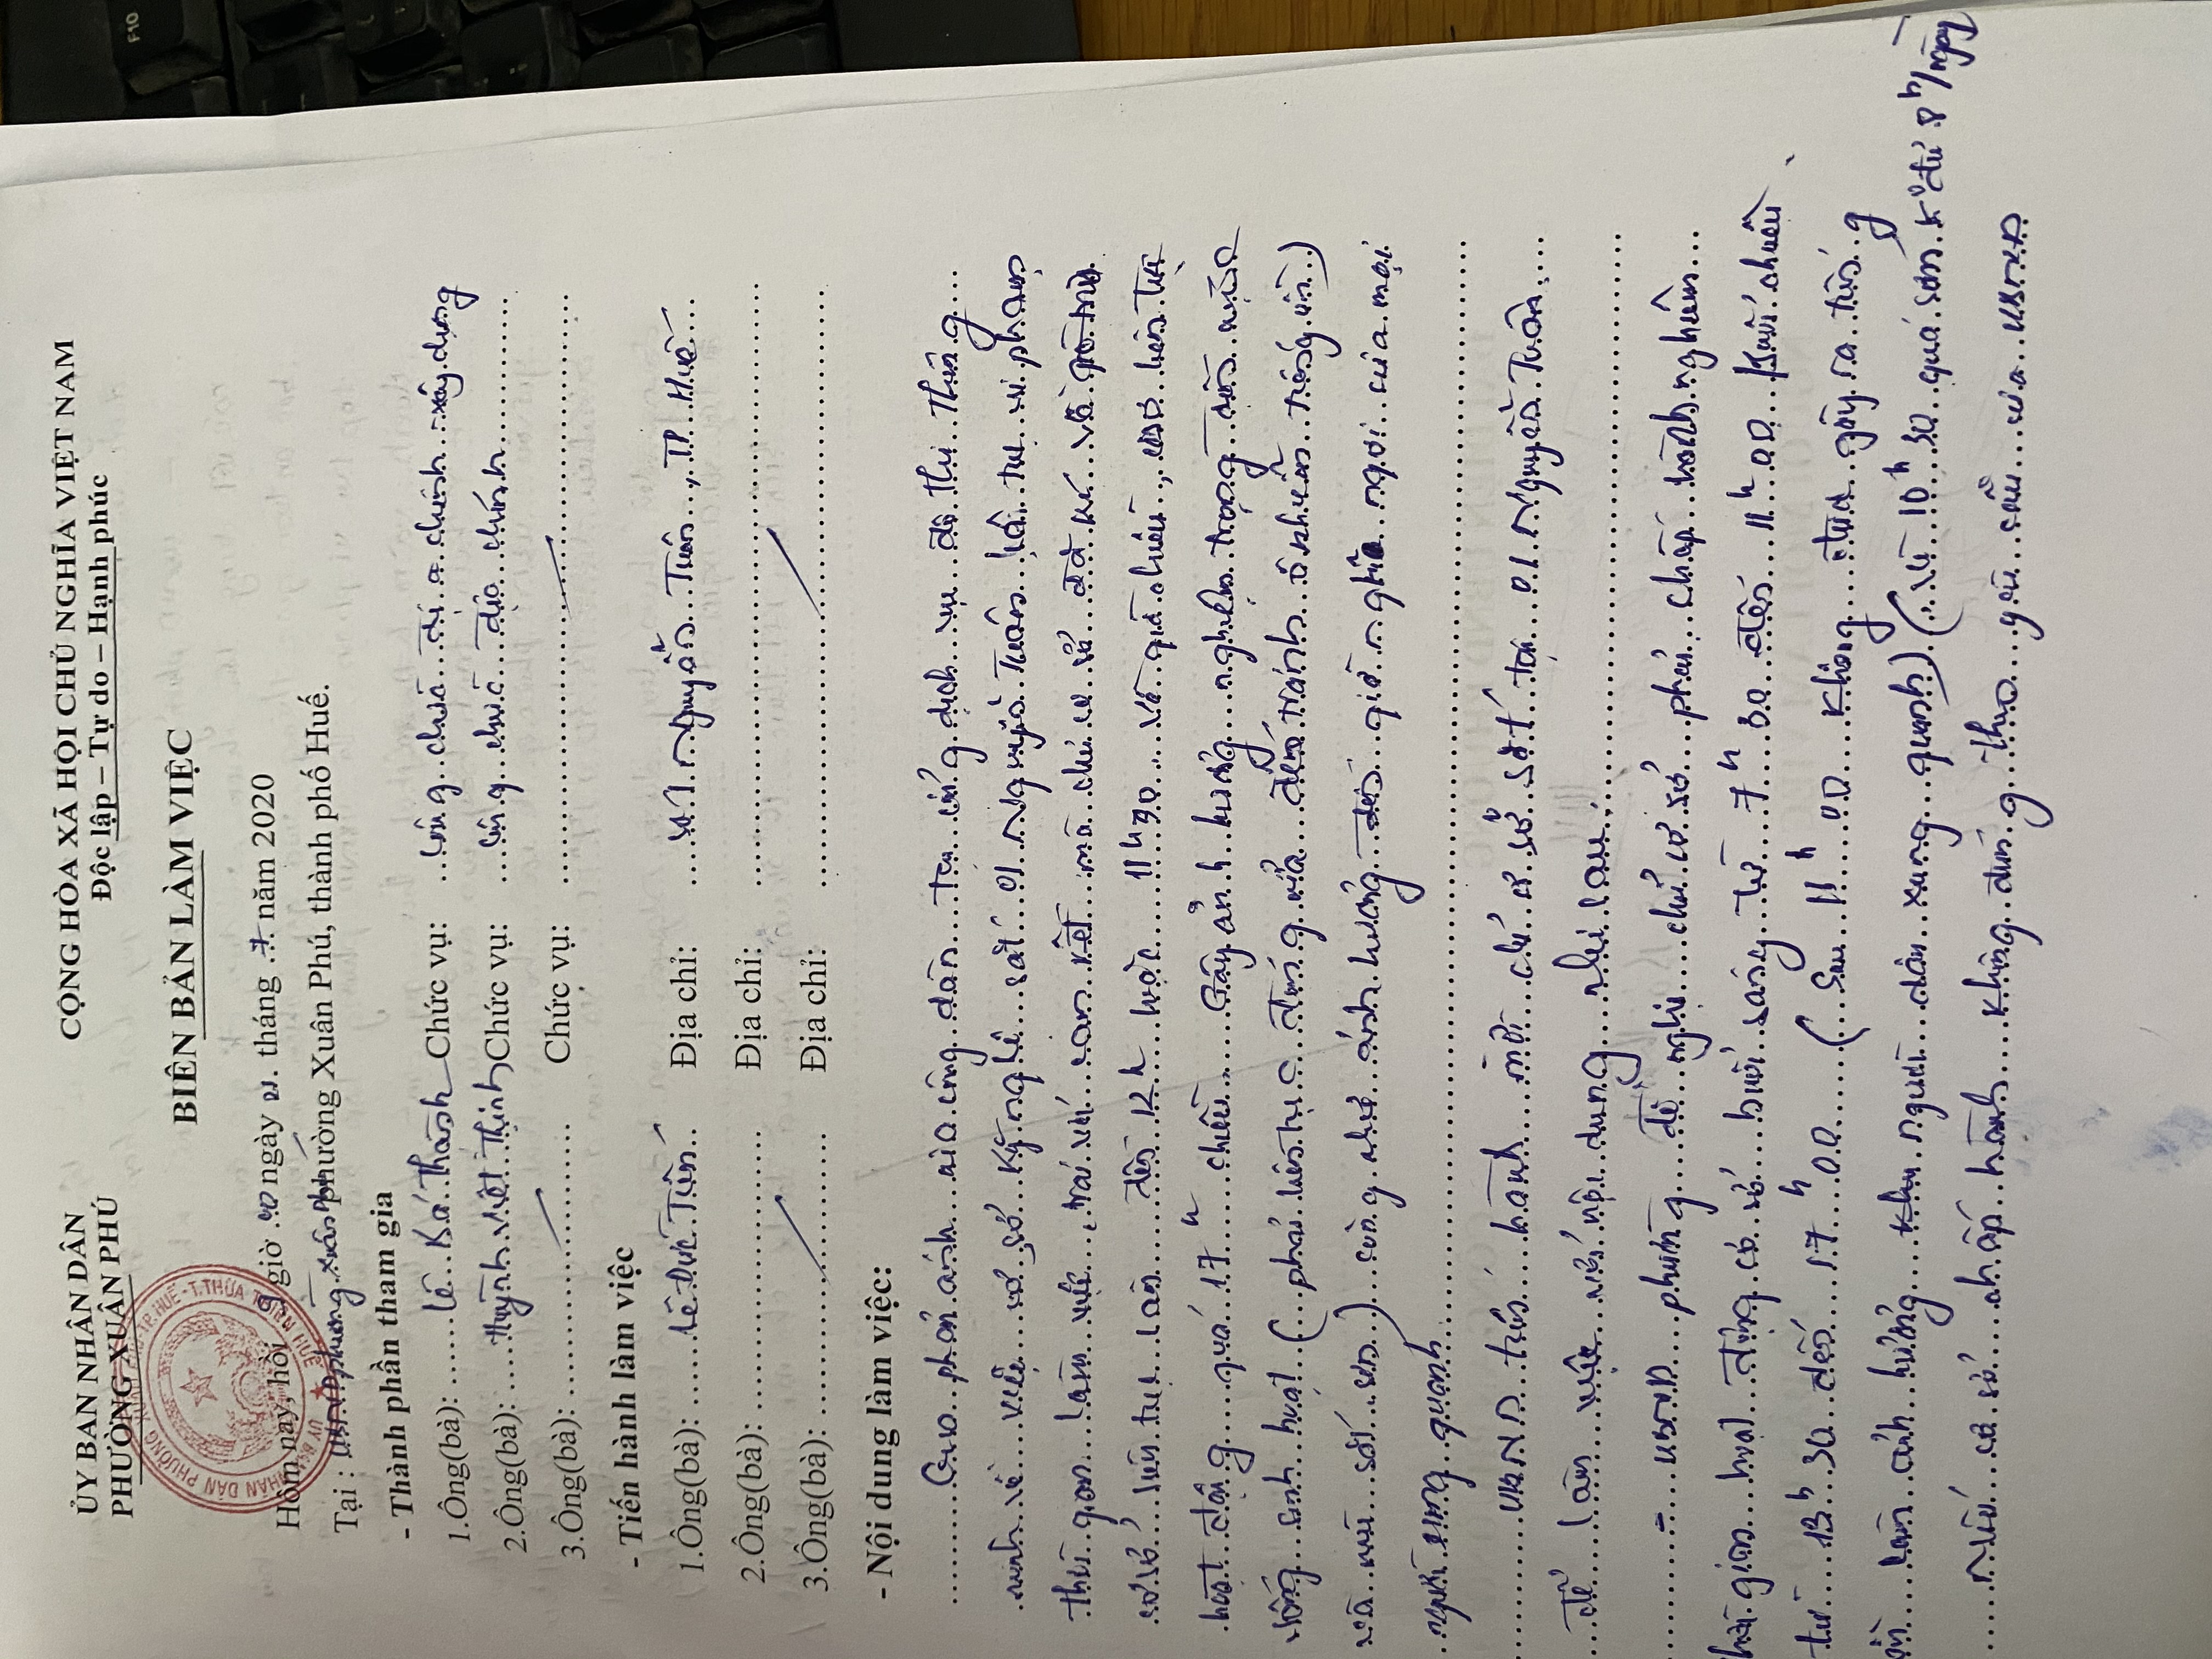 ỦY BAN NHÂN DÂN
PHƯỜNG XUÂN PHÚ
CỘNG HÒA XÃ HỘI CHỦ NGHĨA VIỆT NAM
Độc lập – Tự do – Hạnh phúc
BIÊN BẢN LÀM VIỆC
Hôm nay, hồi 9 giờ 40 ngày 21 tháng 7 năm 2020
Tại : UBND phường Xuân Phú phường Xuân Phú, thành phố Huế.
- Thành phần tham gia
1.Ông(bà): Lê Bá Thành Chức vụ: công chức địa chính - xây dựng
2.Ông(bà): Huỳnh Viết Thịnh Chức vụ: công chức địa chính
3.Ông(bà): Chức vụ:
- Tiến hành làm việc
1.Ông(bà): Lê Đức Tiến Địa chỉ: 01 Nguyễn Tuân, TP Huế
2.Ông(bà): Địa chỉ:
3.Ông(bà): Địa chỉ:
- Nội dung làm việc:
Qua phản ánh của công dân tại cổng dịch vụ đô thị thông
minh về việc cơ sở kỹ nghệ sắt 01 Nguyễn Tuân lại tục vi phạm
thời gian làm việc, trái với cam kết mà chủ cơ sở đã ký và
cơ sở liên tục làm đến 12h hoặc 11h90 và giờ chiều, liên tục
hoạt động quá 17h chiều. Gây ảnh hưởng nghiêm trọng đến cuộc
sống sinh hoạt (phải liên tục đóng cửa để tránh ô nhiễm tiếng ồn)
và mùi sơn) cũng như ảnh hưởng đến giờ nghỉ ngơi của mọi
người xung quanh.
UBND tiến hành mời chủ cơ sở sắt tại 01 Nguyễn Tuân
để làm việc với nội dung như sau:
- UBND phường đề nghị chủ cơ sở phải chấp hành nghiêm
thời gian hoạt động cơ sở buổi sáng từ 7h30 đến 11h00 buổi chiều
từ 13h30 đến 17h00 (Sau 11h00 không được gây ra tiếng
ồn làm ảnh hưởng khu người dân xung quanh) (Vì 10h30 quá sớm k đủ 8h/ngày
Nếu cơ sở chấp hành không đúng theo yêu cầu của UBND